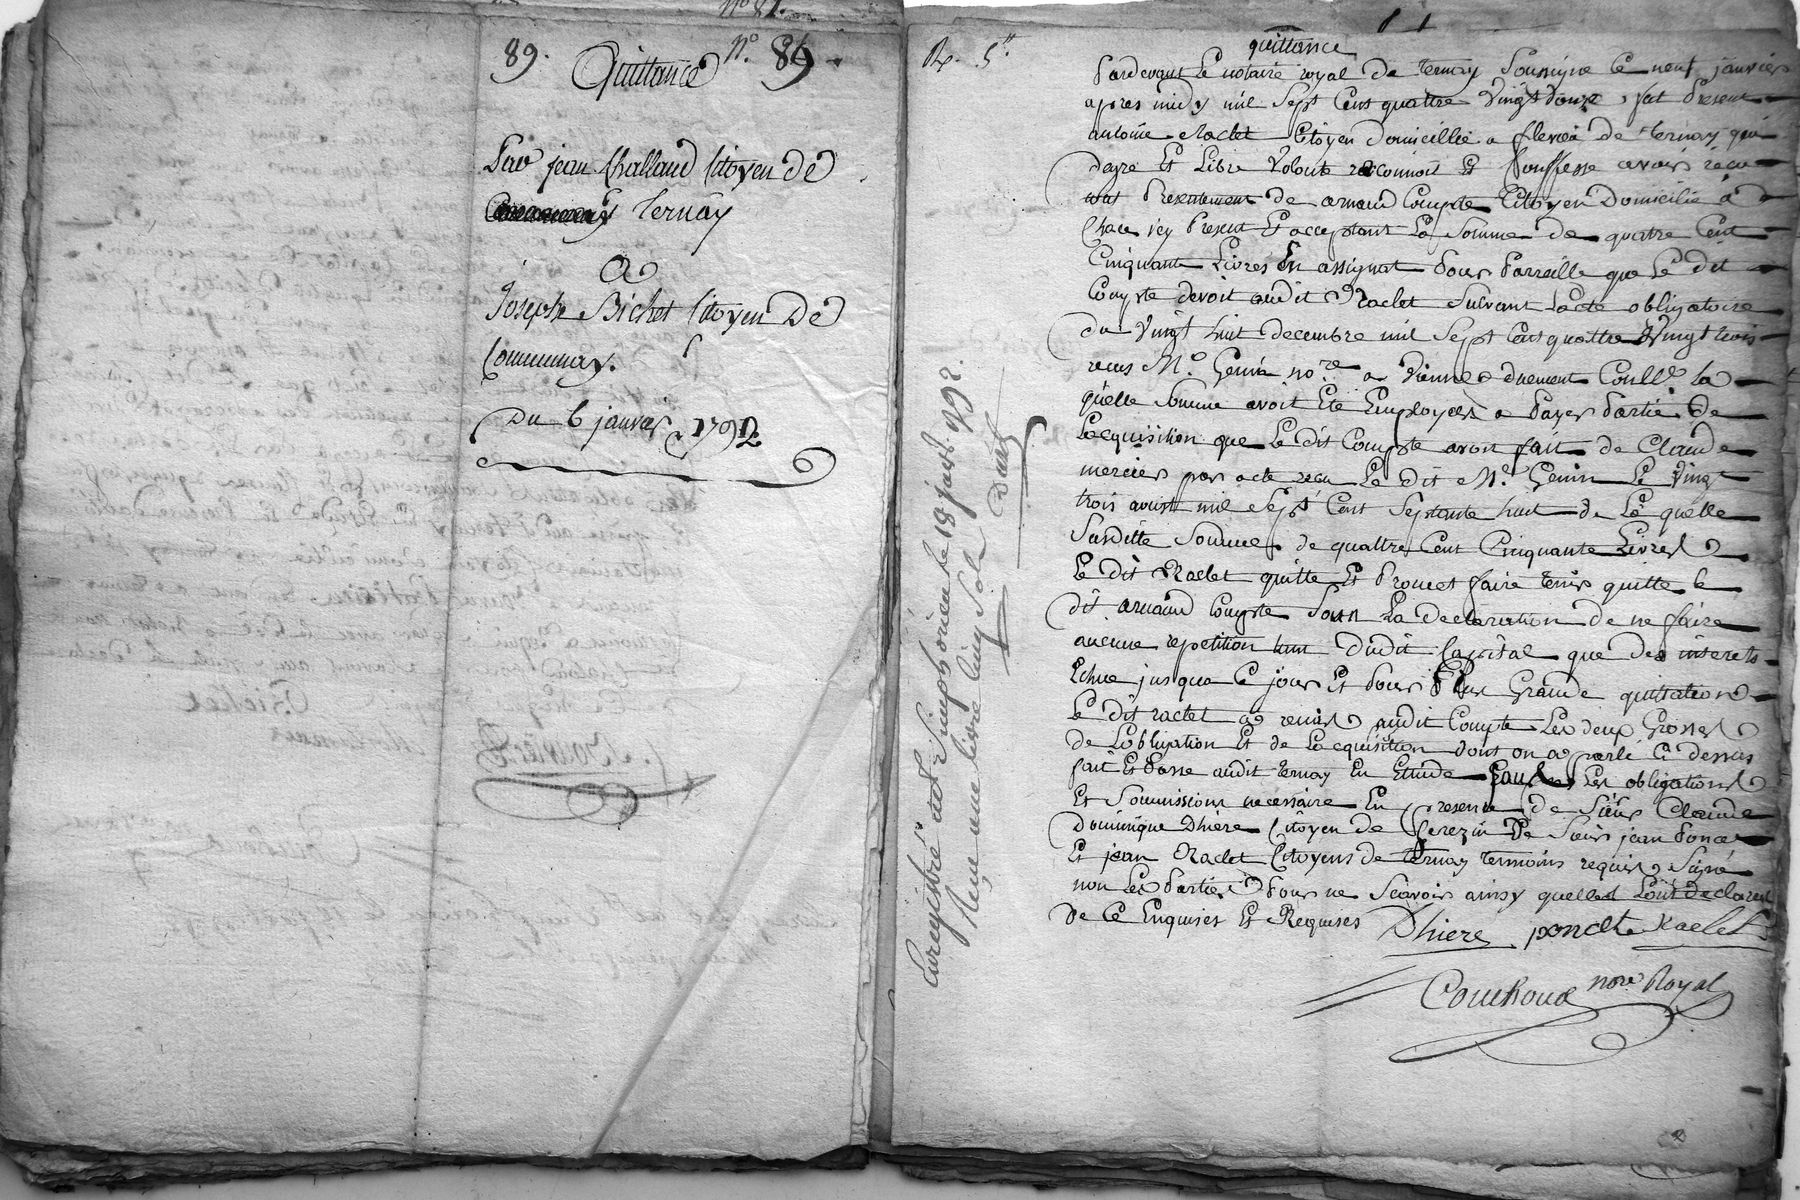 89. Quittance N.° 89
Par jean Challand Citoyen de
Ternay
A
Joseph Bichet Citoyen De
Communay.
Du 6 janvier 1792
R. 5.tt
quittance
Pardevant Le notaire royal de ternay Soussigné Ce neuf janvier
apres midy mil Sept Cent quattre vingt douze, fut Present
antoine Raclet Citoyen domicillié a flevieu de ternay qui
de gre Et Libre volonté reconnoit Et Conffesse avoir récu
Presentement de arnaud Compte Citoyen Domicilié à
icy Present Et acceptant La Somme de quatre Cent
Cinquante Livres En assignat Pour Parreille que Le dit
Compte devoit audit Raclet Suivant Lacte obligatoire
du vingt huit decembre mil Sept Cent quattre vingt trois
recus M.e Genin no.re a vienne duement Conllé la
quelle Somme avoit Eté Employeés a Payer Partie de
Lacquisition que Le dit Compte avoit fait de Claude
mercier par acte recu Le dit M.e Genin Le vingt
trois avust mil Sept Cent Septente huit de La quelle
Susditte Somme de quattre Cent Cinquante Livres
Le dit Raclet quitte Et Promet faire tenir quitte le
dit arnaud Compte Sous La declaration de ne faire
aucune repetition tant dudit Capital que des interets
Echue jusque a Ce jour Et Pour Plus Grande quittation
Le dit raclet a remis audit Compte Les deux Grosses
de Lobligation Et de Lacquisition dont on a parlé Ci dessus
fait Et Passé audit ternay En Etude Les obligations
Et Soumissions necessaire En presence de Sieur Claude
dominique Dhiere Citoyen de Serezin De Sieur jean Poncet
Et jean Raclet Citoyens de ternay temoins requis Signé
non Les Parties Pour ne Scavoir ainsy quelles Lont declarés
De Ce Enquises Et Requises Dhiere poncet Raclet
Couchoud no.re Royal
Enregistré a St Simphorien le 18 janv. 1792.
Reçu une livre cinq sols